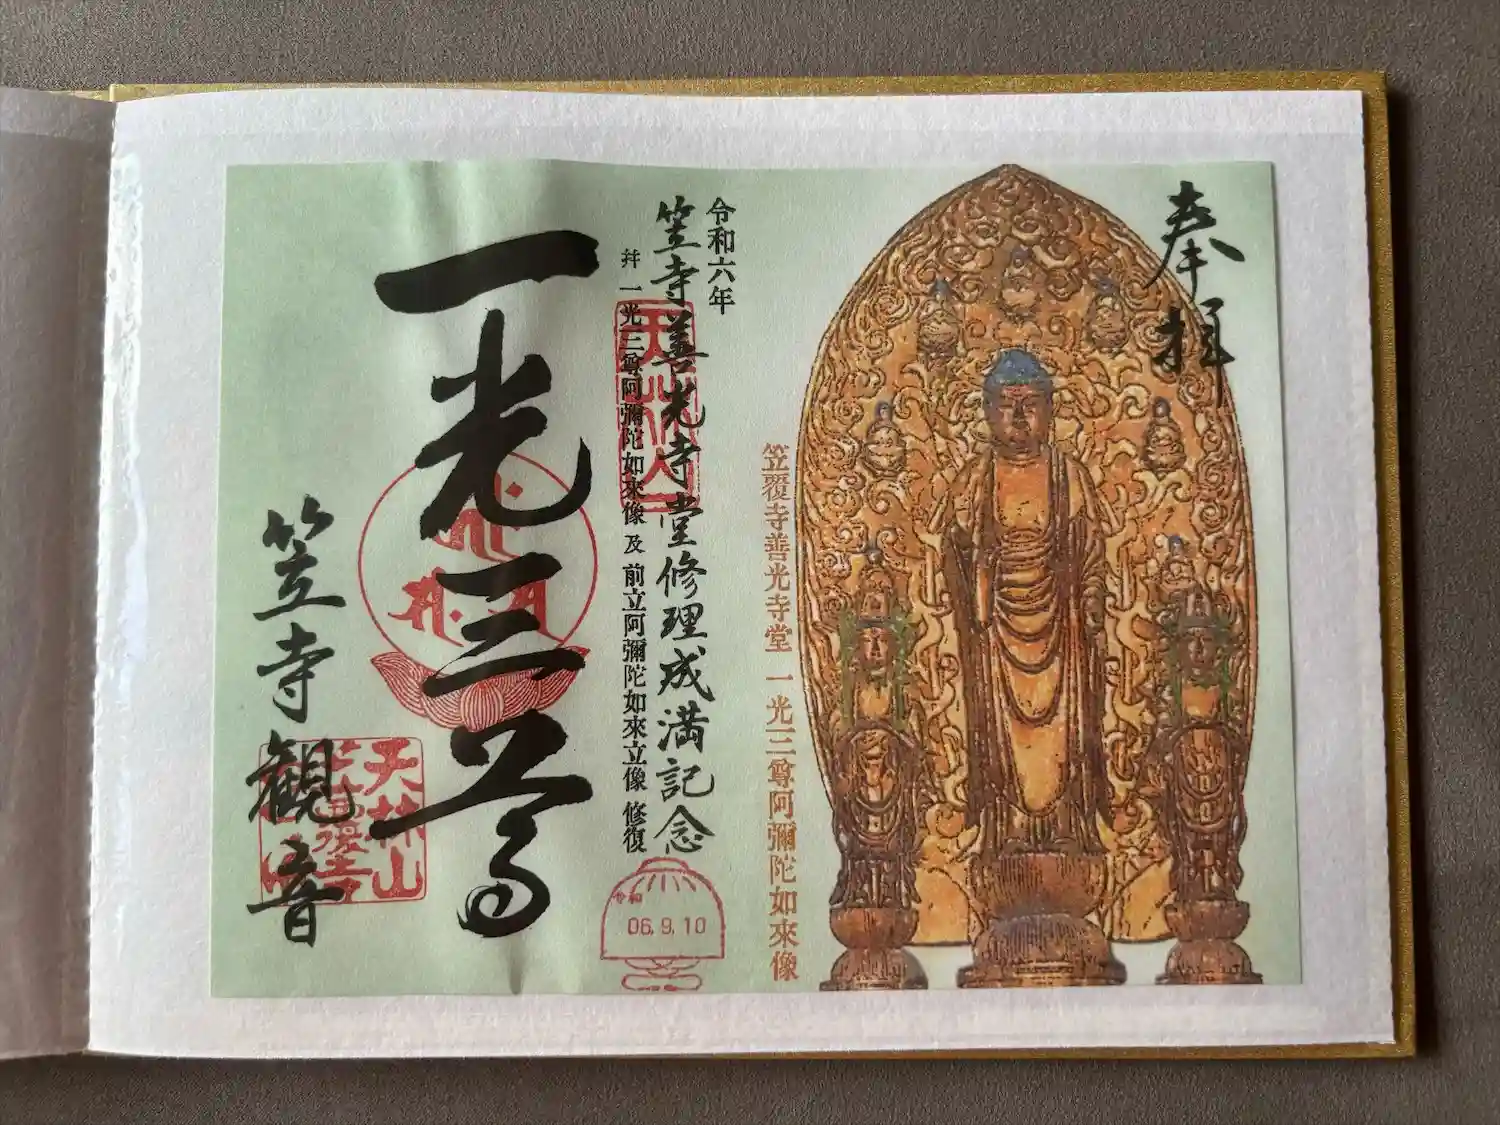 奉拝
笠覆寺善光寺堂 一光三尊阿彌陀如來像
令和六年
笠寺善光寺堂修理成満記念
天林山
幷 一光三尊阿彌陀如來像 及 前立阿彌陀如來立像 修復
令和
06.9.10
一光三尊
笠寺観音
天林山